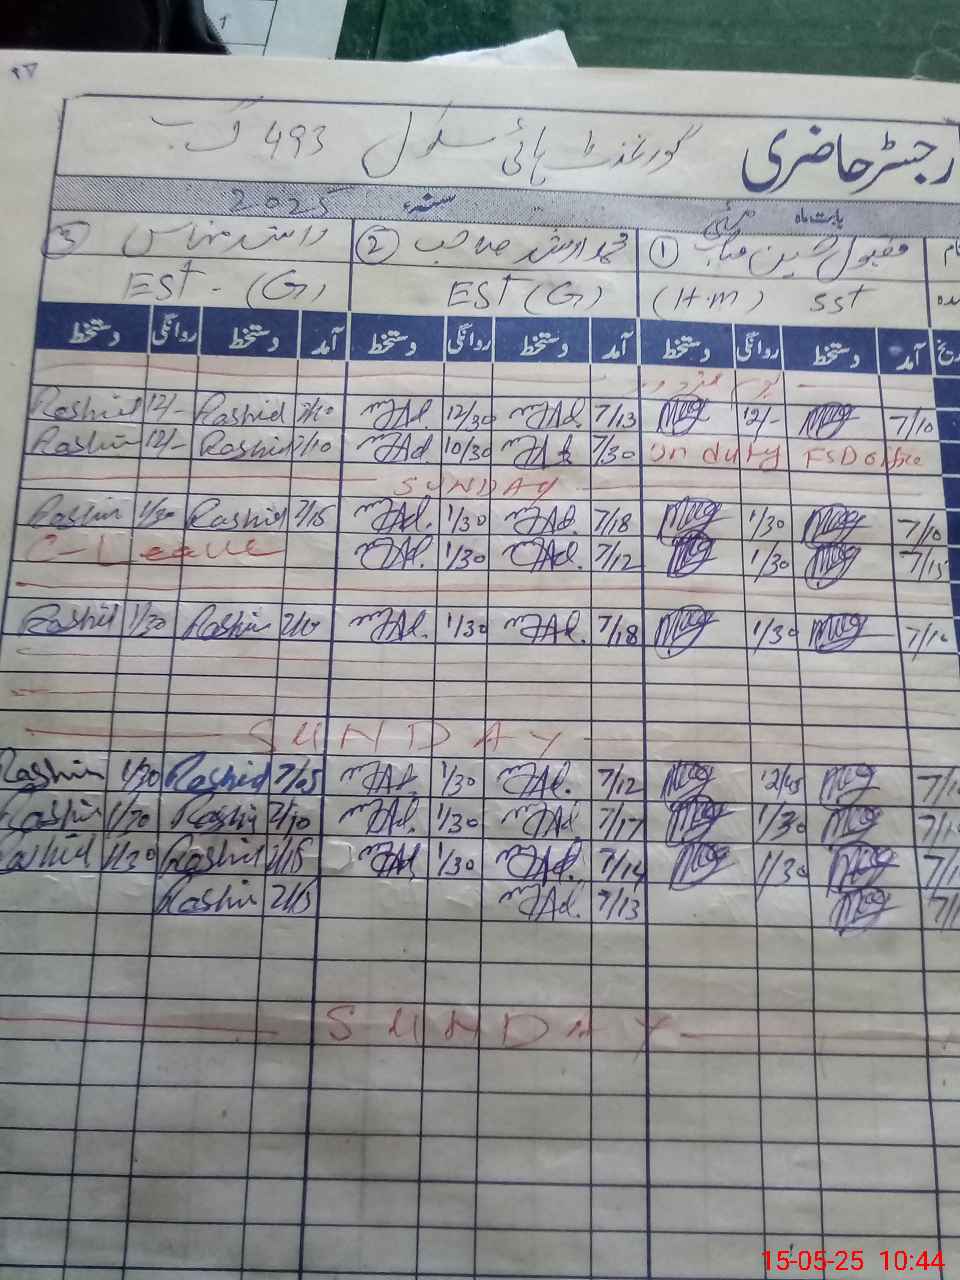 رجسٹر حاضری گورنمنٹ ہائی سکول 493 گ ب
بابت ماہ مئی سنہء 2025
① مقبول حسین ② محمد ارشد صاحب ③ راشد منہاس
SST (H.M) EST (G) EST - (G)
آمد دستخط روانگی دستخط آمد دستخط روانگی دستخط آمد دستخط روانگی دستخط
یوم مزدور
7/10 12/- 7/13 12/30 7/10 Rashid 12/- Rashid
on duty FSD office 7/30 10/30 7/10 Rashid 12/- Rashid
SUNDAY
7/10 1/30 7/18 1/30 7/15 Rashid 1/30 Rashid
7/15 1/30 7/12 1/30 C-Leave
7/10 1/30 7/18 1/30 7/10 Rashid 1/30 Rashid
SUNDAY
12/45 7/12 1/30 7/05 Rashid 1/30 Rashid
1/30 7/17 1/30 7/10 Rashid 1/30 Rashid
1/30 7/14 1/30 7/15 Rashid 1/30 Rashid
7/13 7/15 Rashid
SUNDAY
15-05-25 10:44